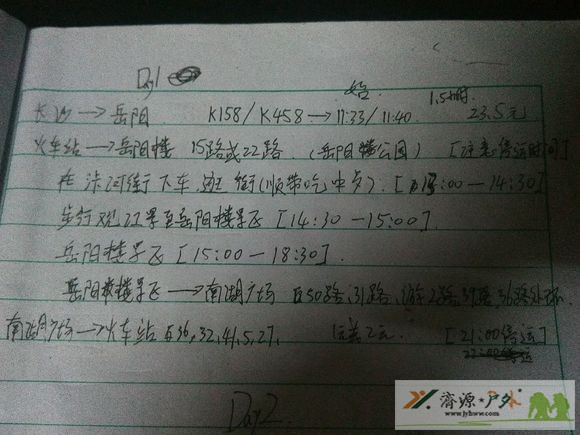 Day1
始 1.5小时
长沙 → 岳阳 K158/K458 → 11:33/11:40 23.5元
火车站 → 岳阳楼 15路或22路.(岳阳楼公园) [注意:停运时间]
在 洋河街下车,逛 街(顺带吃中点).[13:00-14:30]
步行观江景至岳阳楼景区 [14:30-15:00].
岳阳楼景区 [15:00-18:30].
岳阳楼景区 → 南湖广场 50路,31路,游2路,39路,36路外环
南湖广场 → 火车站 36,32,41,5,27, 2元. [21:00停运]
22:00停运
Day2
济源★户外
www.jyhww.com